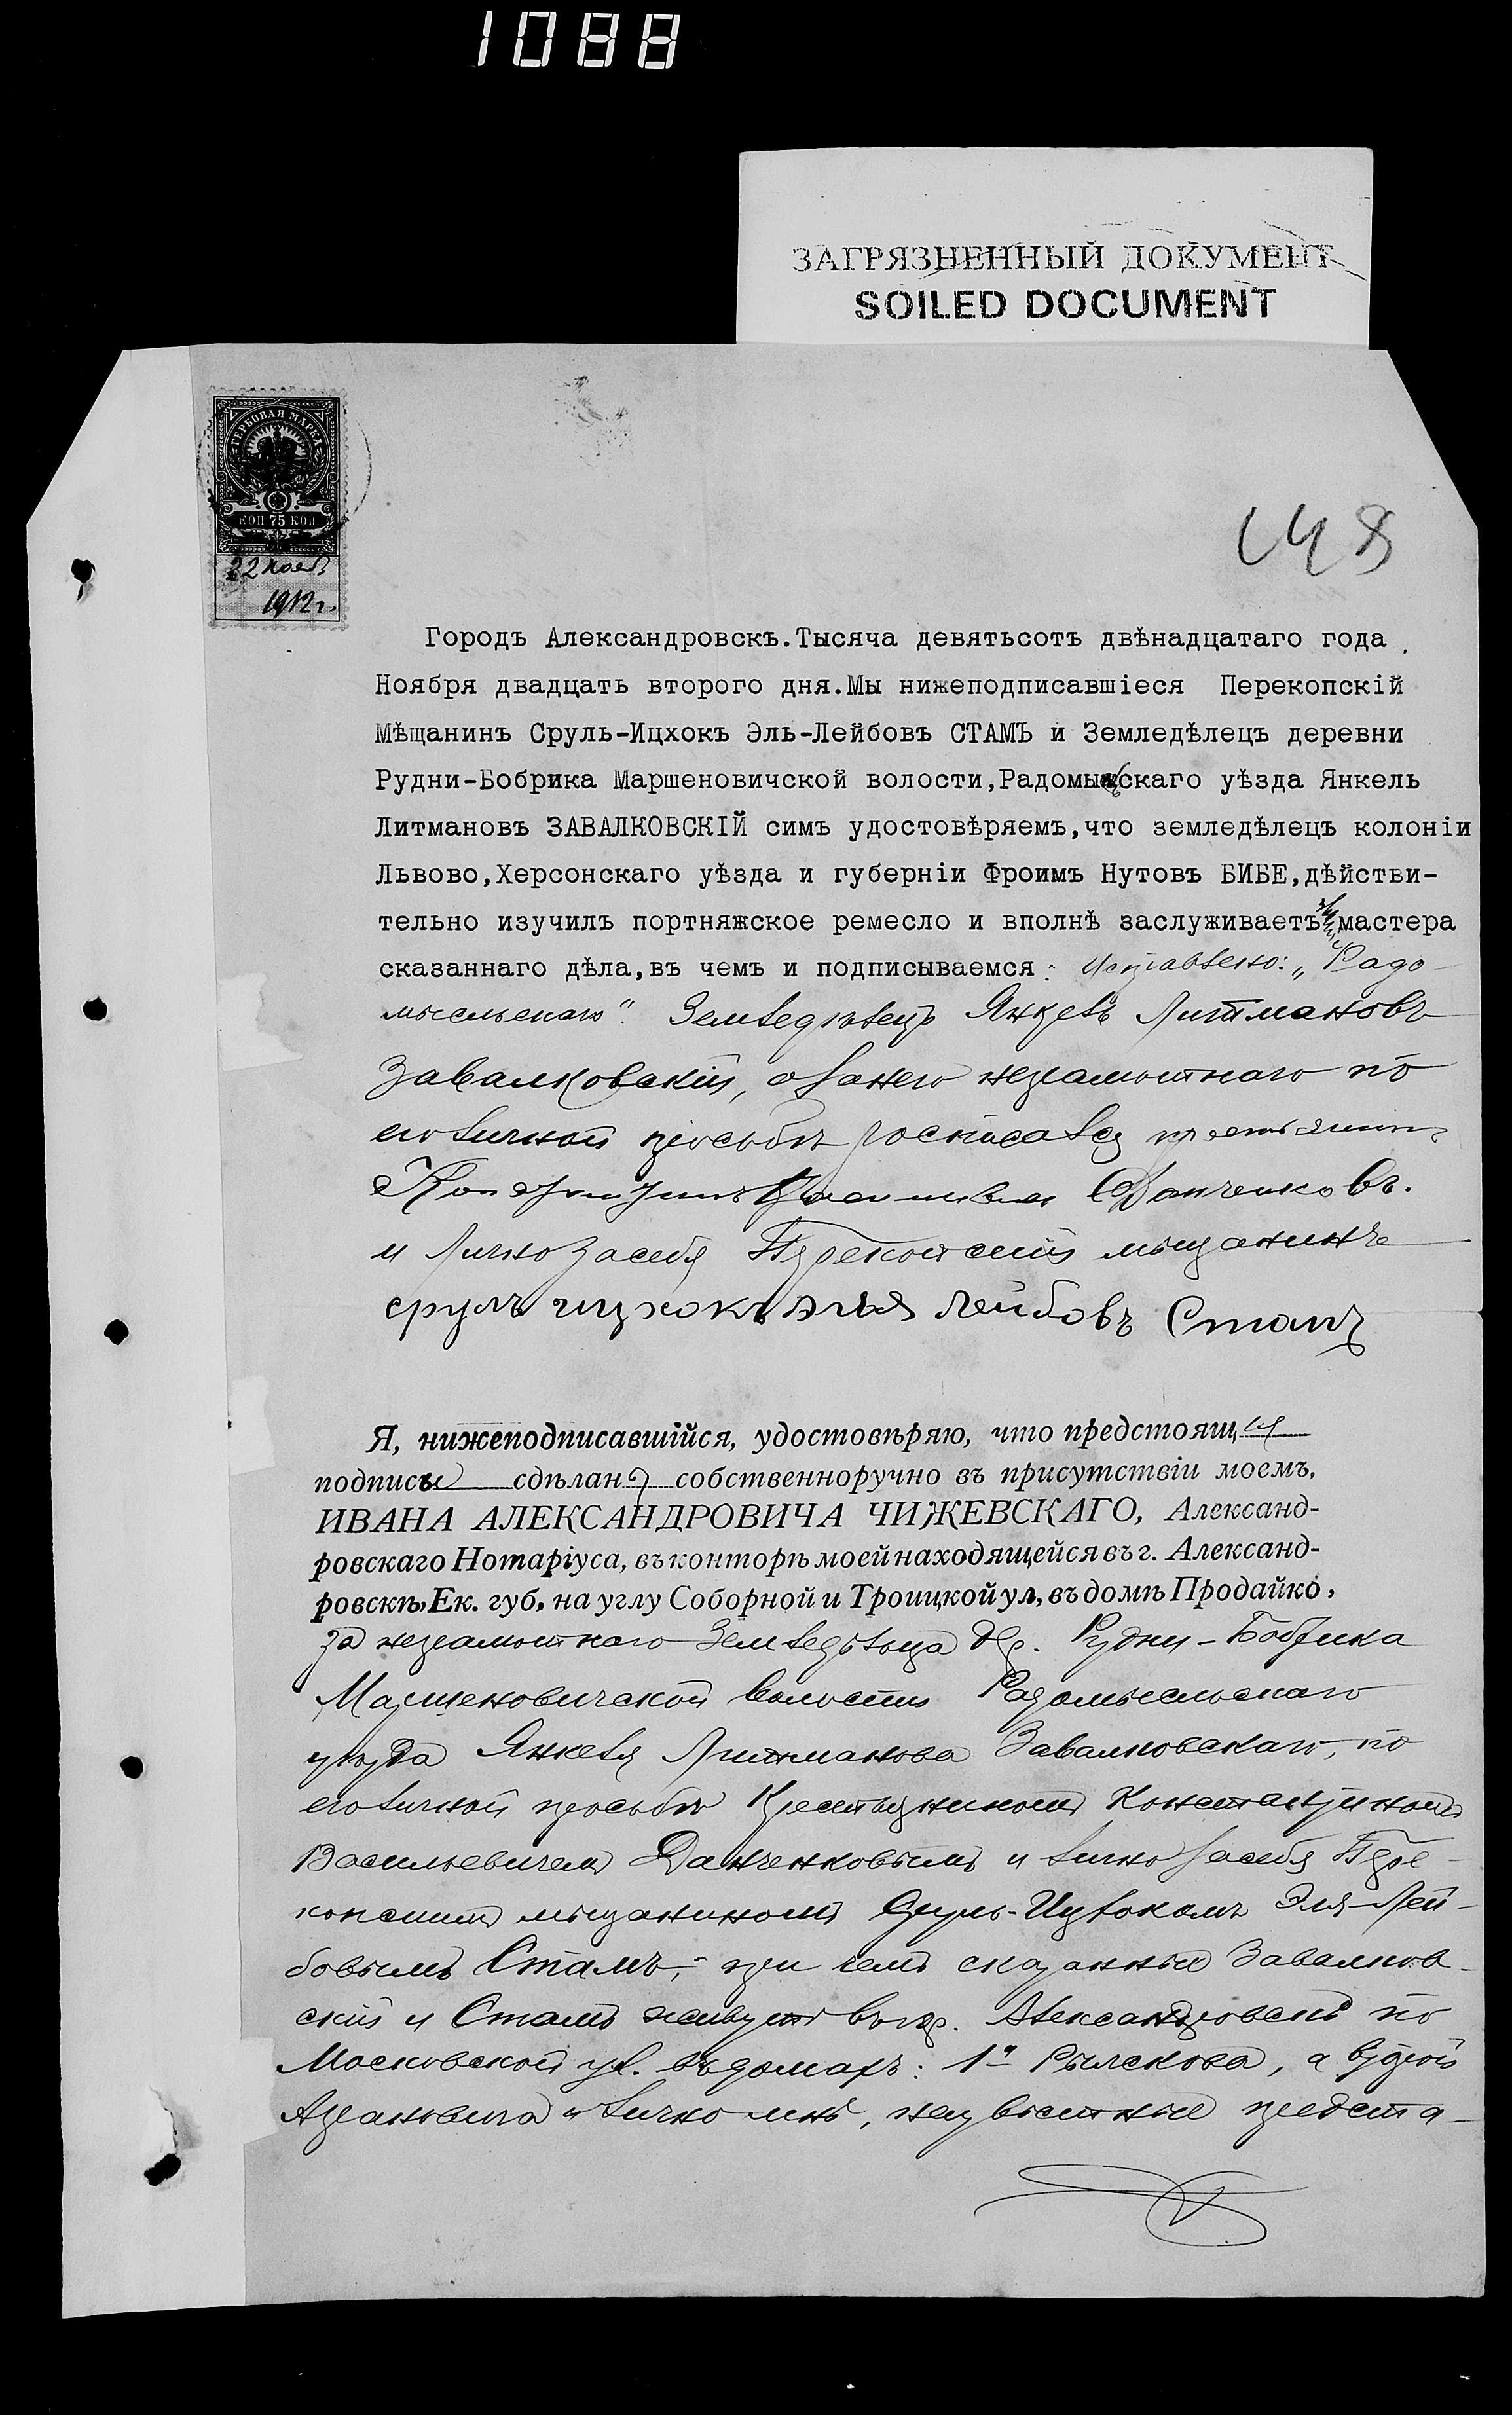 1088
ЗАГРЯЗНЕННЫЙ ДОКУМЕНТ
SOILED DOCUMENT
ГЕРБОВАЯ МАРКА
КОП 75 КОП
22 нояб
1912 г.
Городъ Александровскъ.Тысяча девятьсотъ двѣнадцатаго года
Ноября двадцать второго дня.Мы нижеподписавшіеся Перекопскій
Мѣщанинъ Сруль-Ицхокъ Эль-Лейбовъ СТАМЪ и Земледѣлецъ деревни
Рудни-Бобрика Маршеновичской волости,Радомысскаго уѣзда Янкель
Литмановъ ЗАВАЛКОВСКІЙ симъ удостовѣряемъ,что земледѣлецъ колоніи
Львово,Херсонскаго уѣзда и губерніи Фроимъ Нутовъ БИБЕ,дѣйстви-
тельно изучилъ портняжское ремесло и вполнѣ заслуживаетъ мастера
сказаннаго дѣла,въ чемъ и подписываемся: Исправлено: „Радо
мысльскаго". Земледѣлецъ Янкель Литмановъ
Завалковскій, а за него неграмотнаго по
его личной просьбѣ росписался крестьянинъ
Данченковъ.
и лично за себя Перекопскій мѣщанинъ
сруль ицхокъ эля лейбовъ Стамъ
Я, нижеподписавшійся, удостовѣряю, что предстоящія
подписи сдѣланы собственноручно въ присутствіи моемъ,
ИВАНА АЛЕКСАНДРОВИЧА ЧИЖЕВСКАГО, Александ-
ровскаго Нотаріуса, въ конторѣ моей находящейся въ г. Александ-
ровскѣ, Ек. губ, на углу Соборной и Троицкой ул, въ домѣ Продайко,
за неграмотнаго Земледѣльца дер. Рудни-Бобрика
Маршеновичской волости Радомысльскаго
уѣзда Янкеля Литманова Завалковскаго, по
его личной просьбѣ Крестьяниномъ Константиномъ
Васильевичемъ Данченковымъ и лично за себя Пере-
копскимъ мѣщаниномъ Сруль-Ицхокомъ Эля-Лей-
бовымъ Стамъ, при чемъ сказанные Завалков-
скій и Стамъ живутъ въ гор. Александровскѣ по
Московской ул. въ домахъ: 1й Рылскова, а второй
и лично мнѣ, неизвѣстные предста-